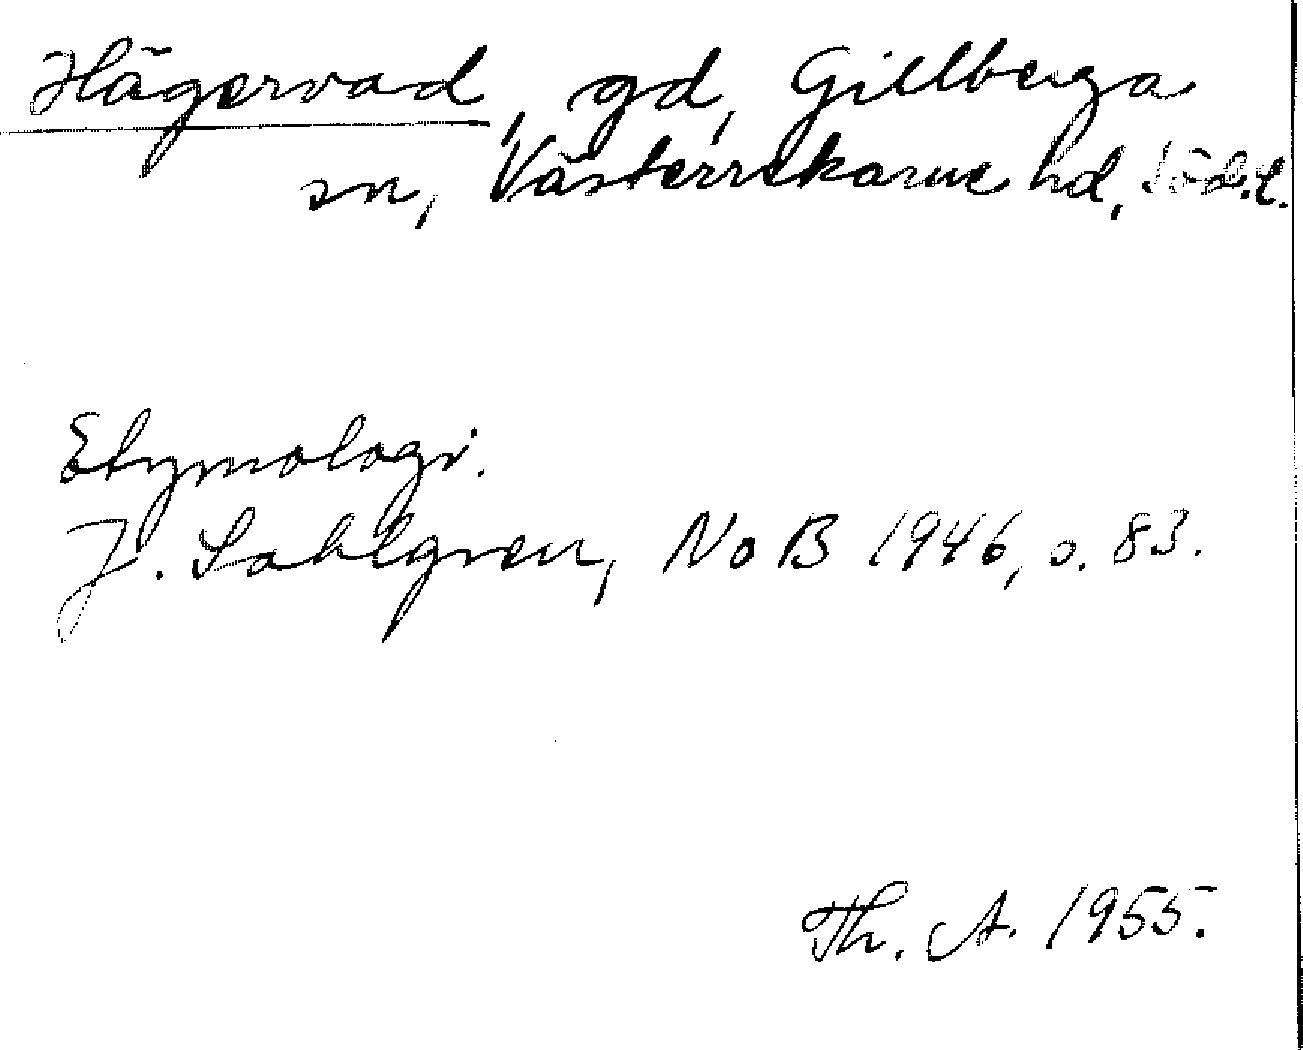 Hägervad, gd, Gillberga
sn, Västerrekarne hd, Södl.
Etymologi.
J. Sahlgren, NoB 1946, s. 83.
Th. A. 1955.